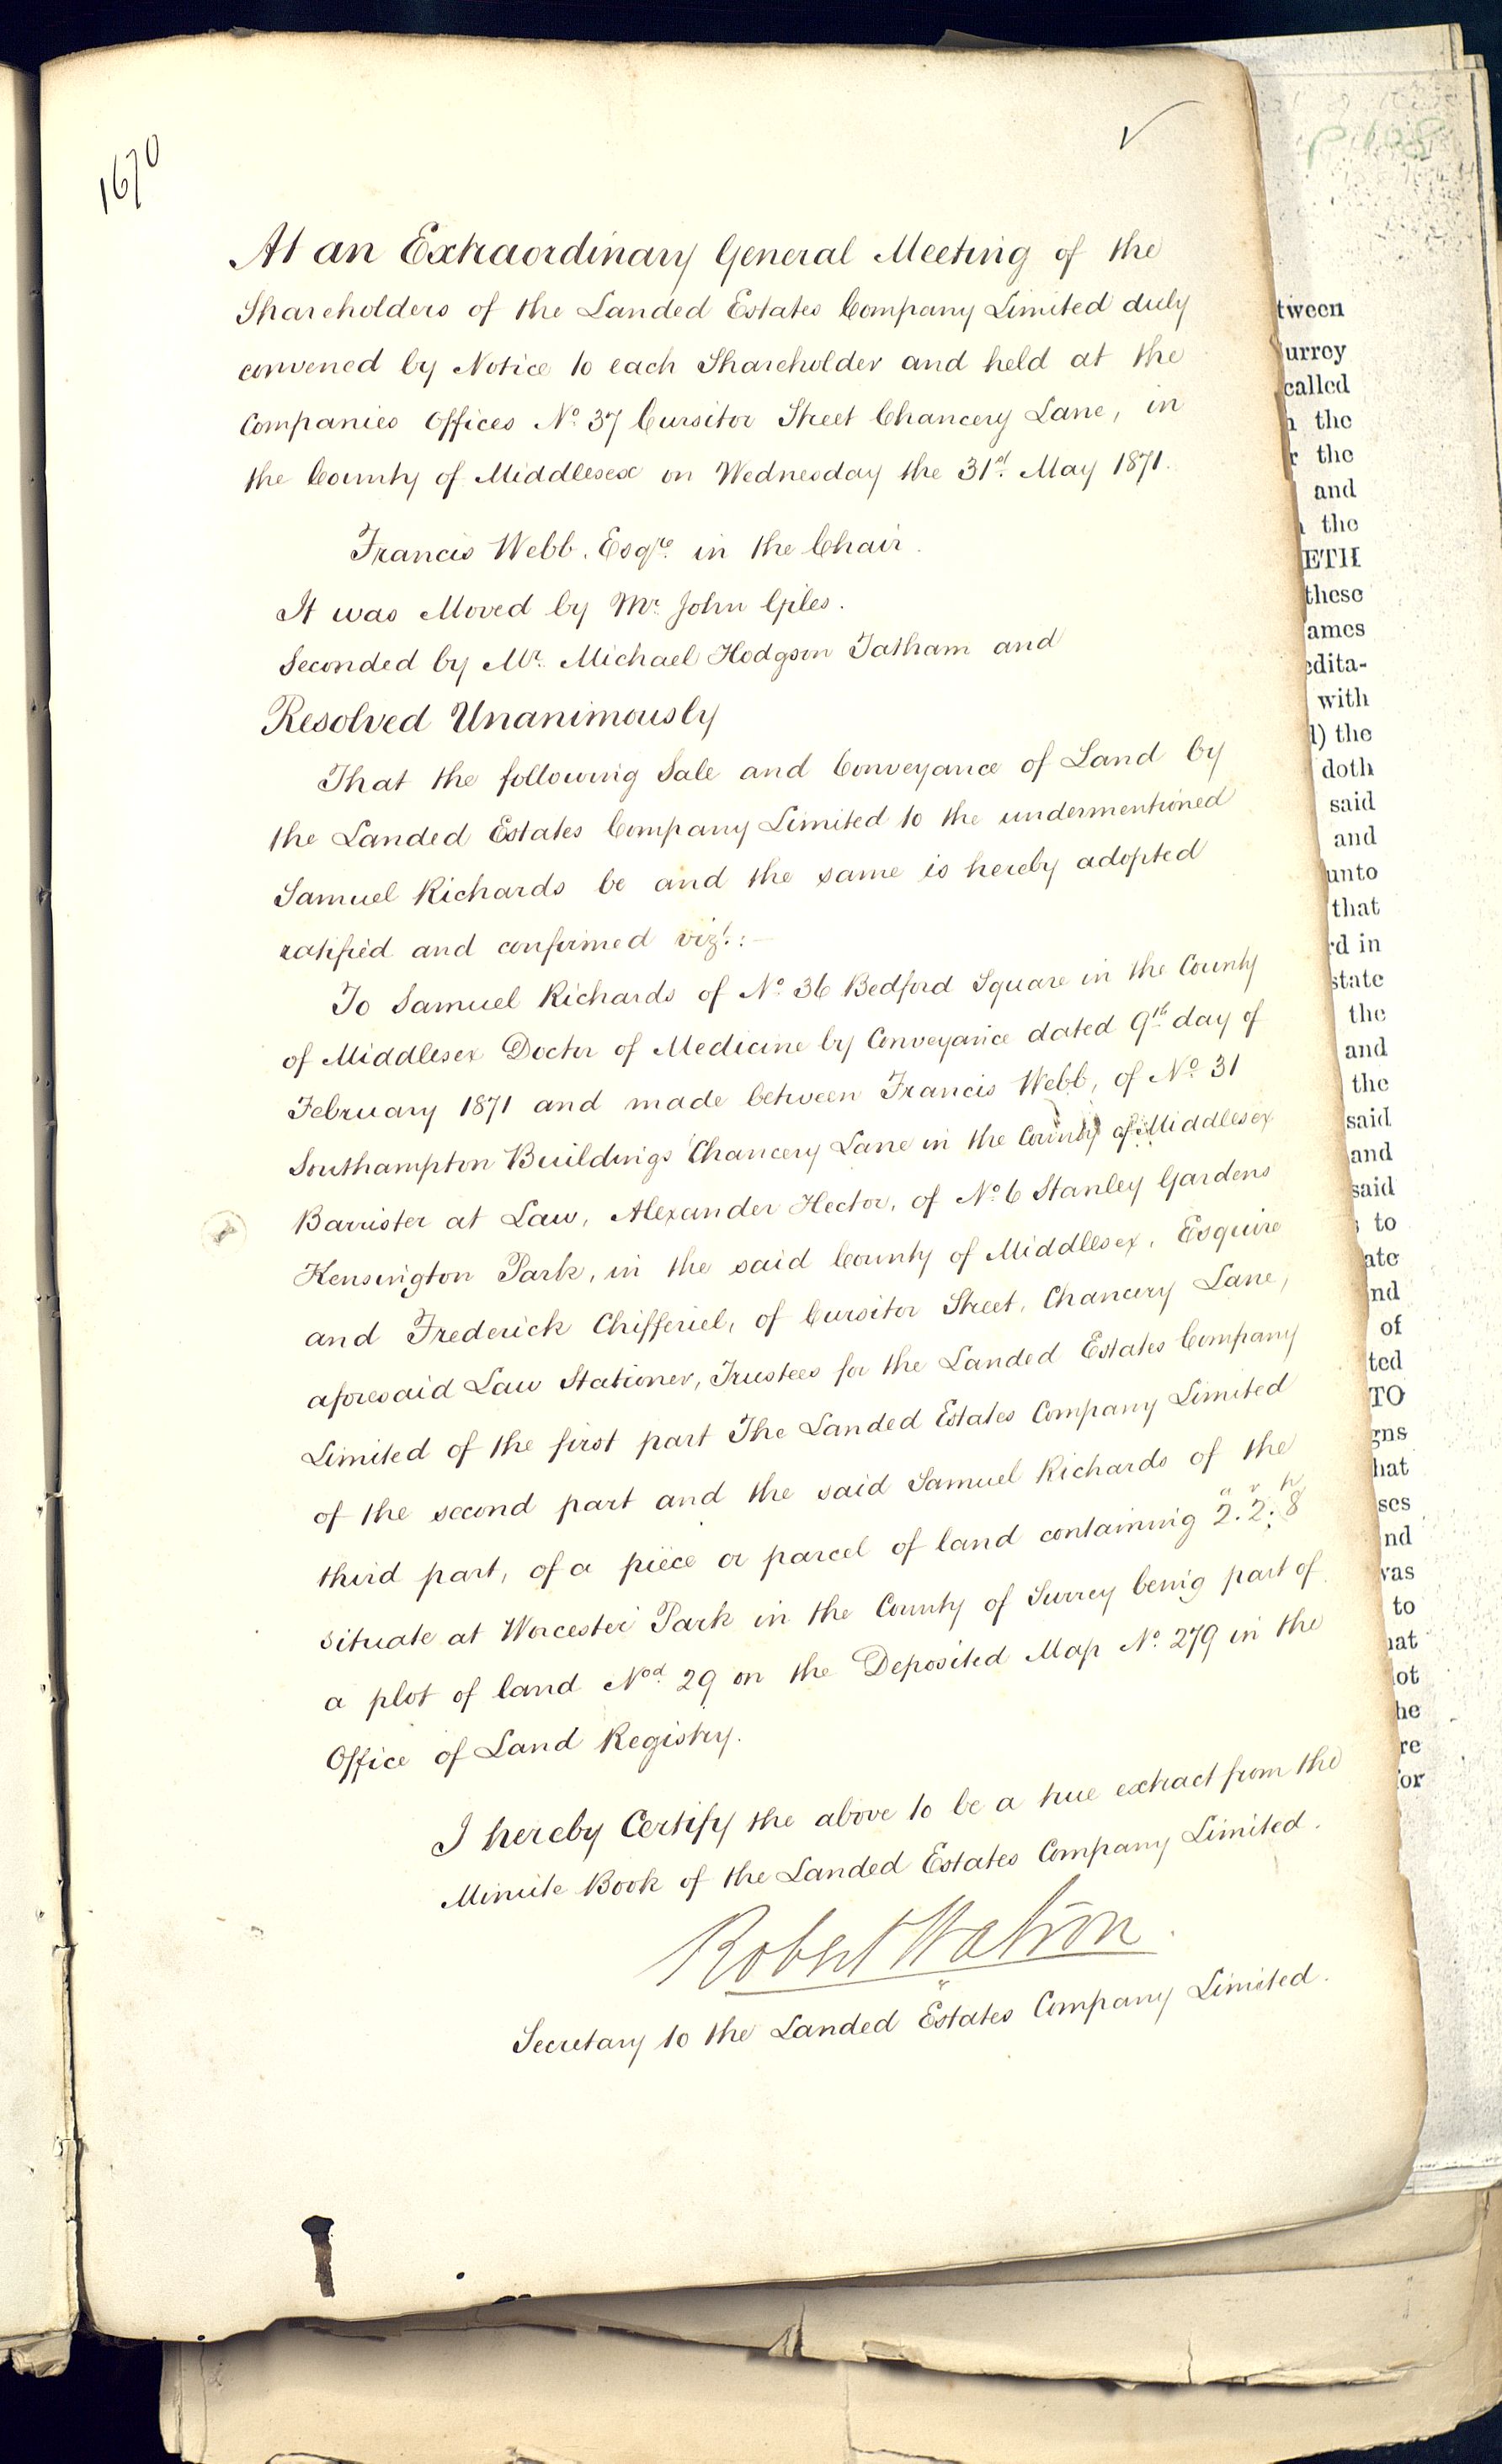 1670
At an Extraordinary General Meeting of the
Shareholders of the Landed Estates Company Limited duly
convened by Notice to each Shareholder and held at the
Companies Offices No. 37 Cursitor Street Chancery Lane, in
the County of Middlesex on Wednesday the 31st. May 1871.
Francis Webb. Esqre. in the Chair.
It was Moved by Mr. John Giles.
Seconded by Mr. Michael Hodgson Tatham and
Resolved Unanimously
That the following Sale and Conveyance of Land by
the Landed Estates Company Limited to the undermentioned
Samuel Richards be and the same is hereby adopted
ratified and confirmed vizt.:—
To Samuel Richards of No. 36 Bedford Square in the County
of Middlesex Doctor of Medicine by Conveyance dated 9th day of
February 1871 and made between Francis Webb, of No. 31
Southampton Buildings Chancery Lane in the County of Middlesex
Barrister at Law, Alexander Hector, of No. 6 Stanley Gardens
Kensington Park, in the said County of Middlesex, Esquire
and Frederick Chifferiel, of Cursitor Street, Chancery Lane,
aforesaid Law Stationer, Trustees for the Landed Estates Company
Limited of the first part The Landed Estates Company Limited
of the second part and the said Samuel Richards of the
third part, of a piece or parcel of land containing 2a. 2r. 8p
situate at Worcester Park in the County of Surrey being part of
a plot of land Nod. 29 on the Deposited Map No. 279 in the
Office of Land Registry.
I hereby Certify the above to be a true extract from the
Minute Book of the Landed Estates Company Limited.
Robert Watson
Secretary to the Landed Estates Company Limited.
tween
urrey
called
the
the
and
the
ETH
these
ames
edita-
with
l) the
doth
said
and
unto
that
rd in
state
the
and
the
said
and
said
to
ate
nd
of
ted
TO
gns
hat
ses
nd
vas
to
hat
lot
he
re
for